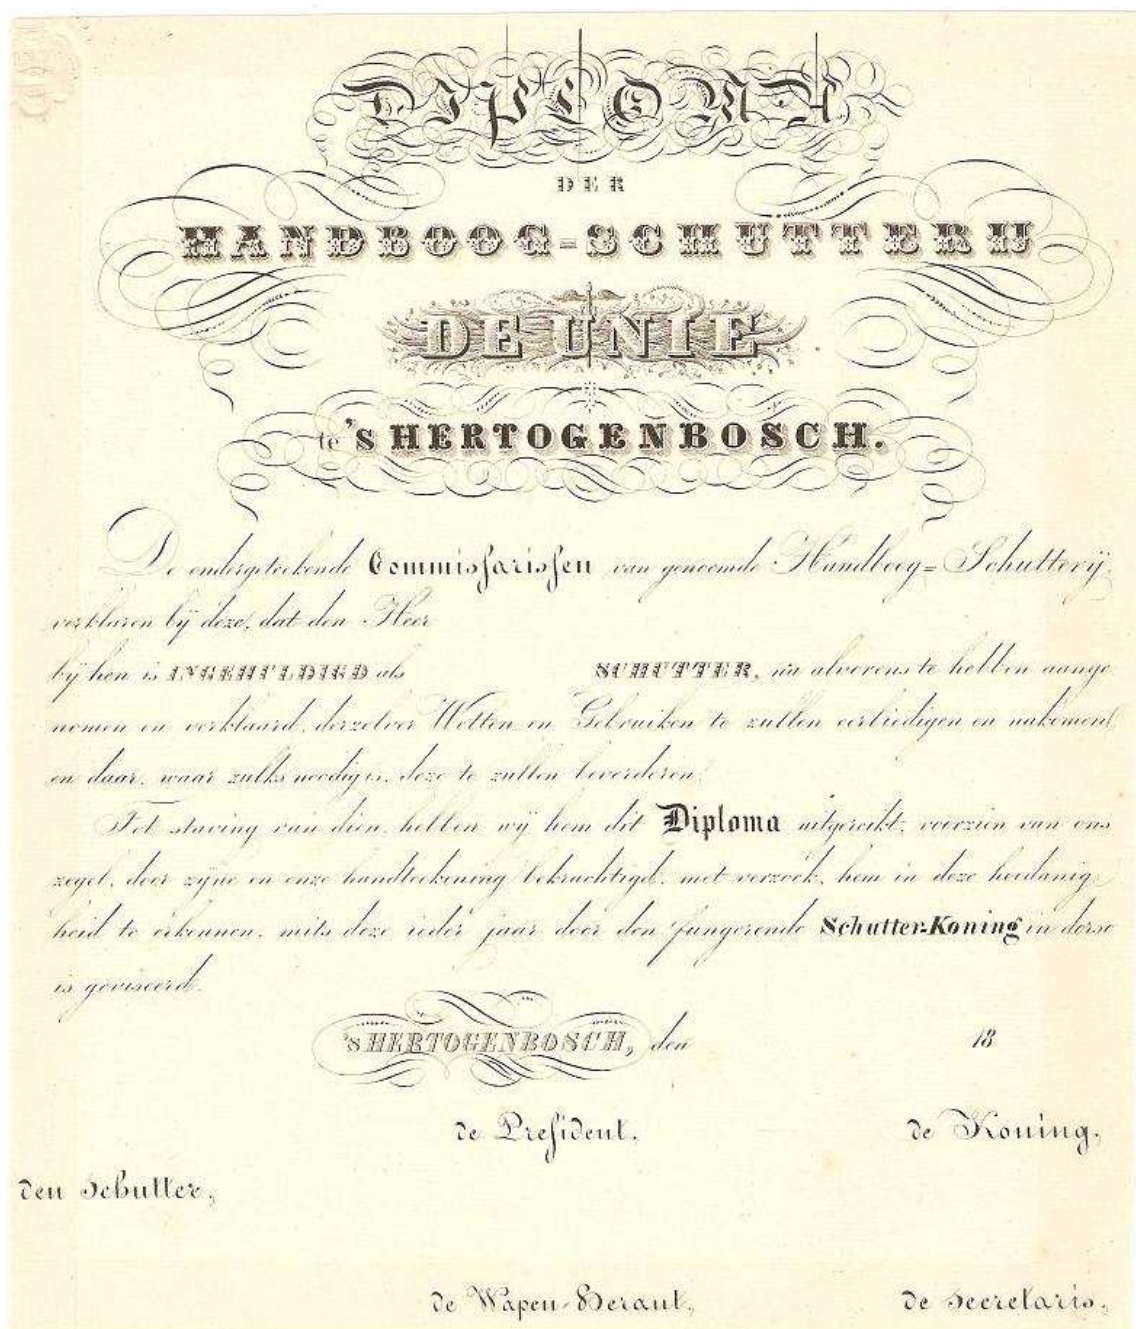 DIPLOMA
DER
HANDBOOG=SCHUTTERIJ
DE UNIE
te 's HERTOGENBOSCH.
De ondergeteekende Commissarissen van genoemde Handboog=Schutterij,
verklaren bij deze, dat den Heer
bij hen is INGEHULDIGD als SCHUTTER, na alvorens te hebben aange
nomen en verklaard, derzelver Wetten en Gebruiken te zullen eerbiedigen en nakomen,
en daar, waar zulks noodig is, deze te zullen bevorderen.
Tot staving van dien, hebben wij hem dit Diploma uitgereikt, voorzien van ons
zegel, door zijne en onze handteekening bekrachtigd, met verzoek, hem in deze hoedanig
heid te erkennen, mits deze ieder jaar door den fungerende Schutter-Koning in dorso
is geviseerd.
's HERTOGENBOSCH, den 18
de President. de Koning.
den Schutter,
de Wapen-Heraut, de Secretaris,